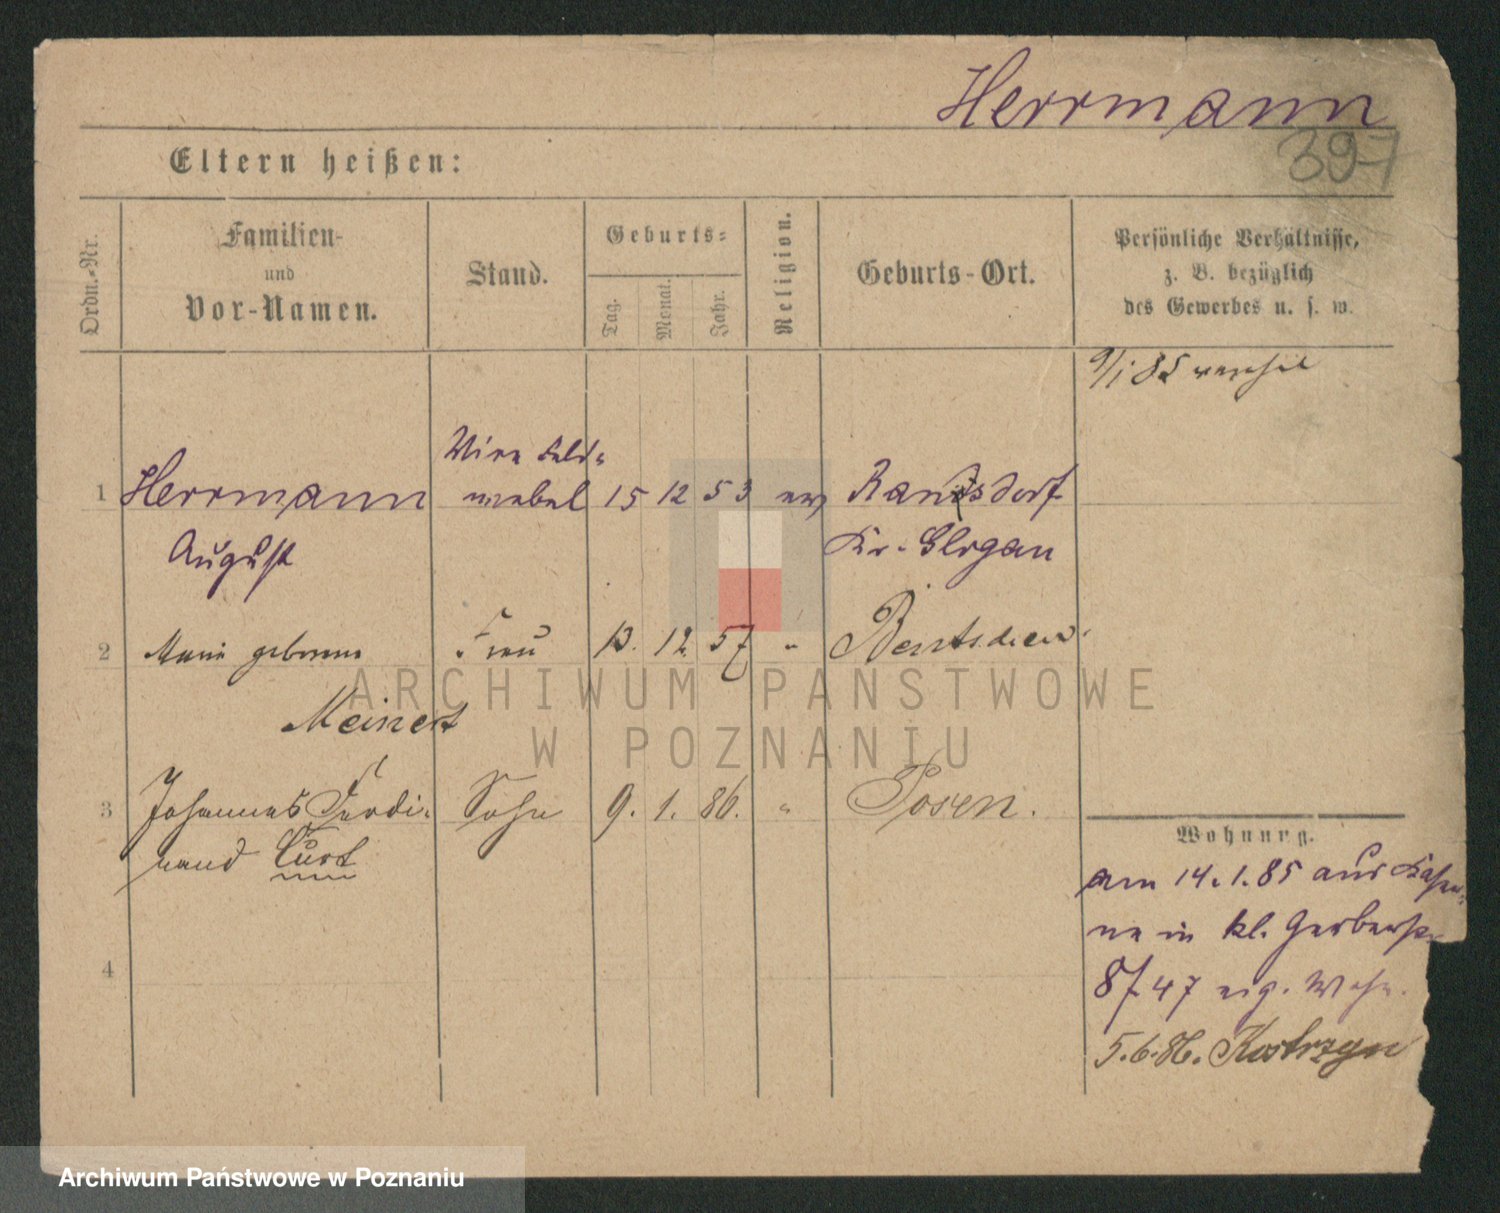 Herrmann
397
Eltern heißen:
Ordn.-Nr.
Familien-
und
Vor-Namen.
Stand.
Geburts-
Tag.
Monat.
Jahr.
Religion.
Geburts-Ort.
Persönliche Verhältnisse,
z. B. bezüglich
des Gewerbes u. s. w.
9/1 85
1 Herrmann
August
Vize Feld-
webel
15 12 53 ev
Ransdorf
Kr. Glogau
2 Marie geborene
Meinert
Frau 13. 12. 57 "
Bentschen
3 Johannes Ferdi-
nand Curt
Sohn 9. 1. 86. "
Posen.
4
Wohnung.
am 14.1.85 aus Kaser-
ne in kl. Gerberstr
8/ 47 eig. Wohn.
5.6.86. Kostrzyn
ARCHIWUM PAŃSTWOWE
W POZNANIU
Archiwum Państwowe w Poznaniu